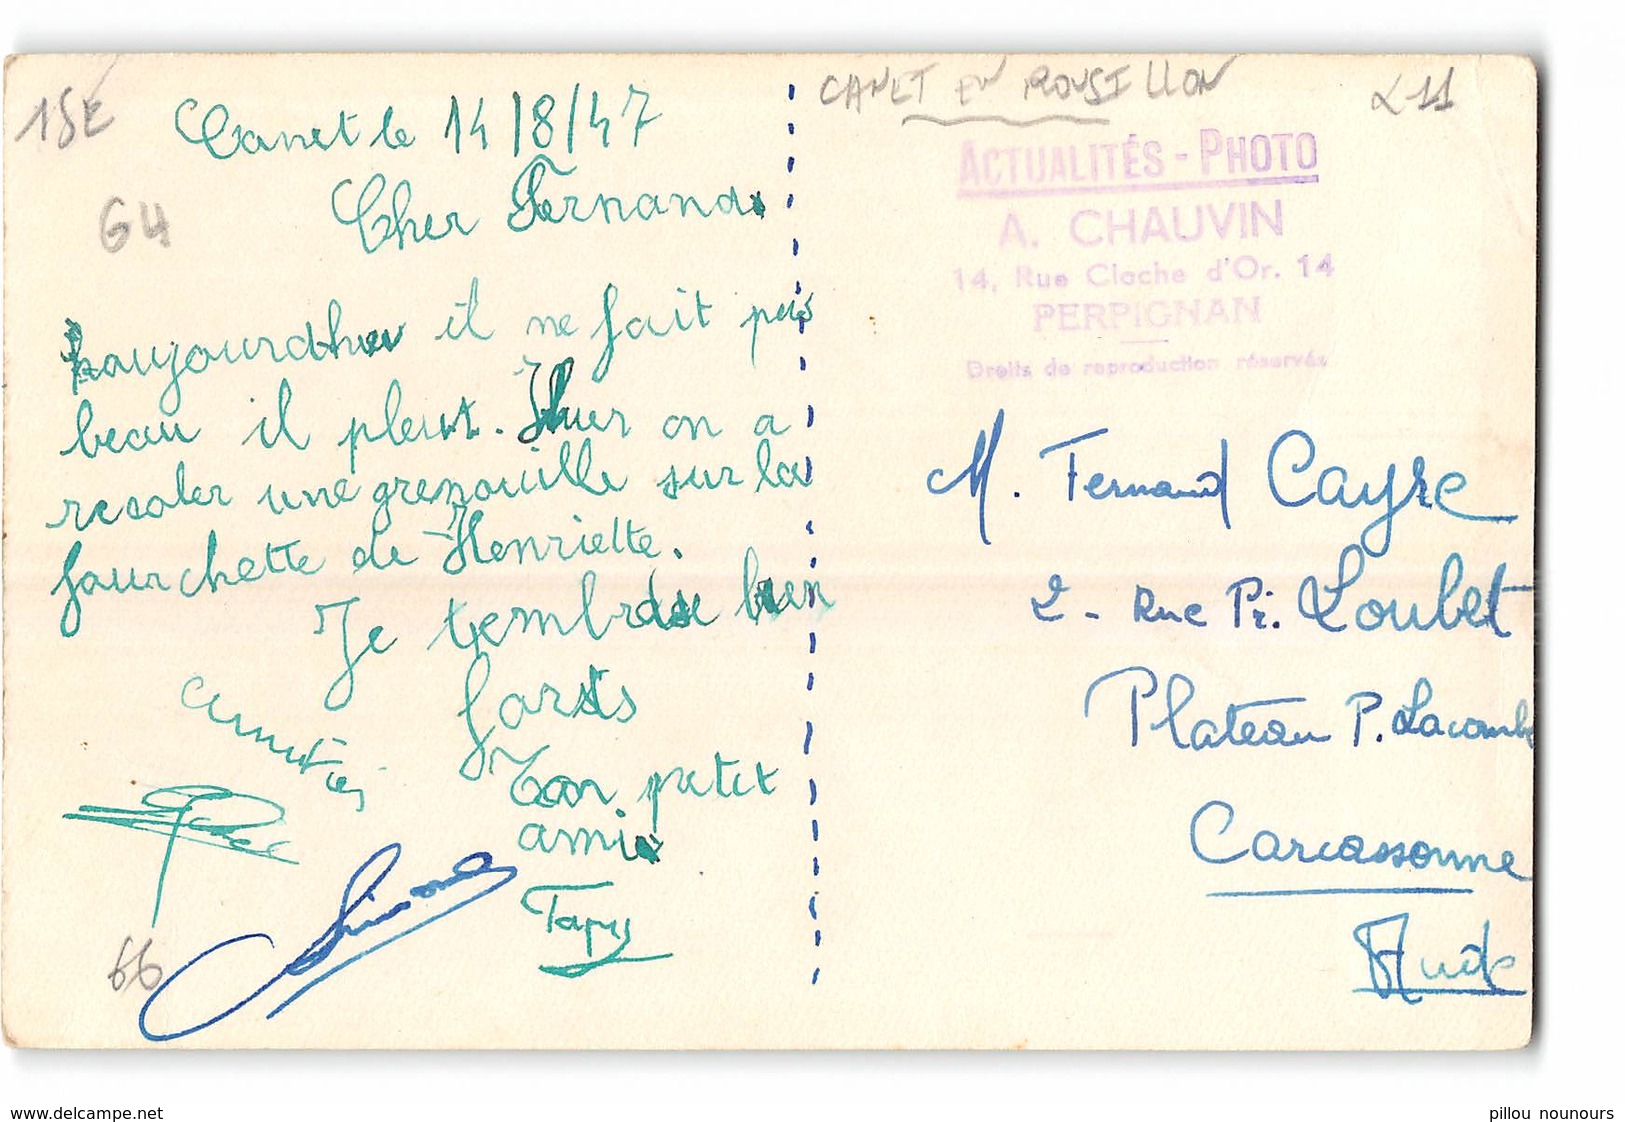 15E
Canet le 14/8/47
G4
Cher Fernand
aujourdhui il ne fait pas
beau il pleut. Hier on a
resaler une grenouille sur la
fourchette de Henriette.
Je tembrasse bien
forts
Ton petit
ami
Tapy
amitiés
Simone
66
CANET EN ROUSILLON
L11
ACTUALITÉS - PHOTO
A. CHAUVIN
14, Rue Cloche d'Or. 14
PERPIGNAN
Droits de reproduction réservés
M. Fernand Cayre
2 - Rue Pr. Loubet
Plateau P. Lacombe
Carcassonne
Aude
www.delcampe.net
pillou nounours